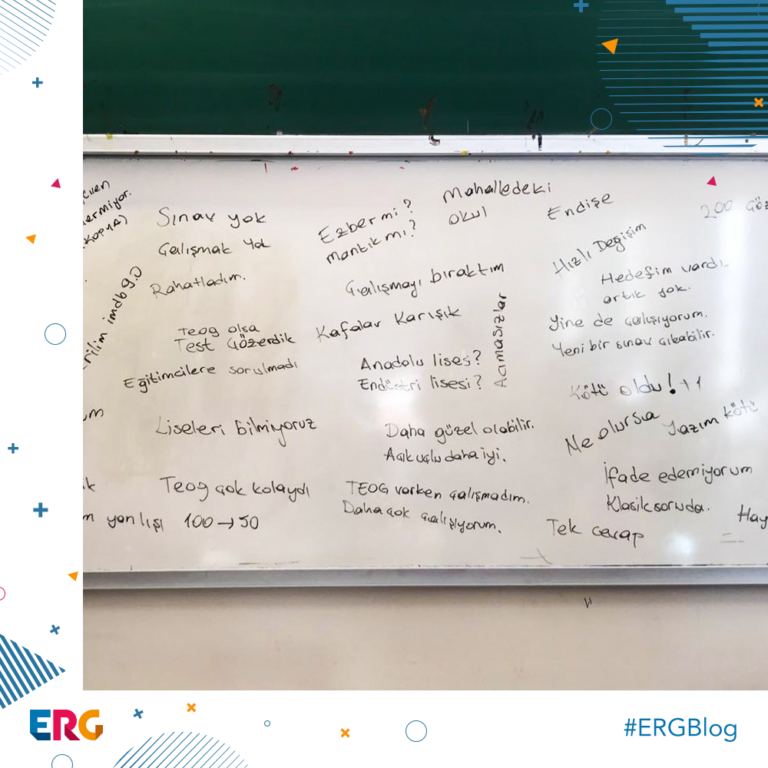 Sınav yok
Çalışmak yok
Rahatladım.
gerilim imdb9.0
Teog olsa
Test Çözerdik
Eğitimcilere sorulmadı
Liseleri bilmiyoruz
Teog çok kolaydı
yanlışı 100→50
Ezber mi?
mantık mı?
Mahalledeki
okul
Çalışmayı bıraktım
Kafalar Karışık
Acımasızlar
Anadolu lisesi?
Endüstri lisesi?
Daha güzel olabilir.
Açık uçlu daha iyi.
TEOG varken çalışmadım.
Daha çok çalışıyorum.
Endişe
200
Hızlı Değişim
Hedefim vardı
artık yok.
Yine de çalışıyorum.
Yeni bir sınav çıkabilir.
Kötü oldu!
Ne olursa
Yazım kötü
İfade edemiyorum
Klasik soruda.
Tek cevap
Hay
ERG
#ERGBlog